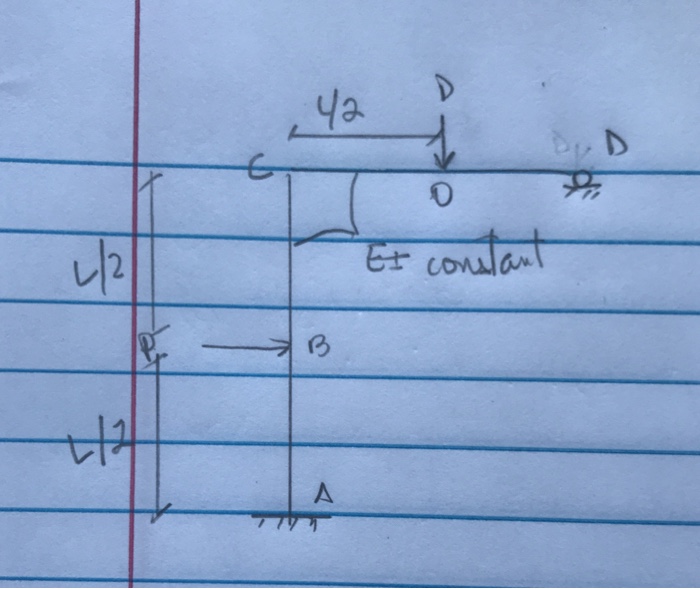 D
L/2
C
D
O
EI constant
L/2
P
B
L/2
A